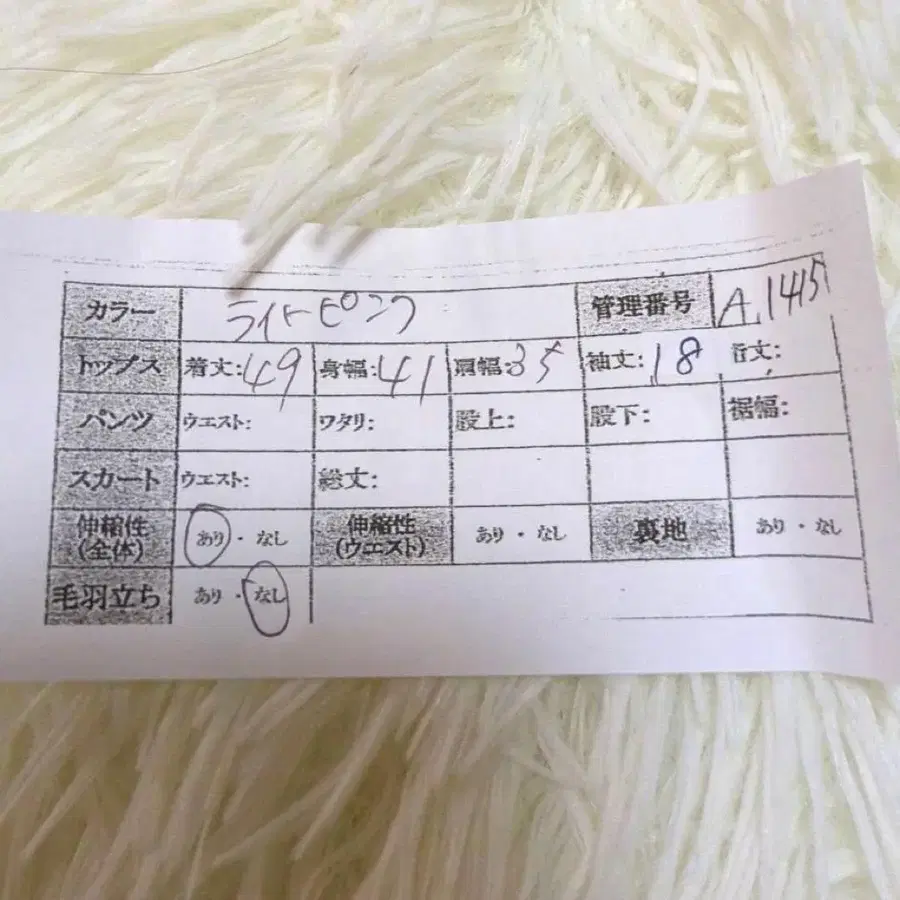 カラー ライトピンク 管理番号 A.1415
トップス 着丈:49 身幅:41 肩幅:35 袖丈:18 裄丈:
パンツ ウエスト: ワタリ: 股上: 股下: 裾幅:
スカート ウエスト: 総丈:
伸縮性(全体) あり・なし 伸縮性(ウエスト) あり・なし 裏地 あり・なし
毛羽立ち あり・なし